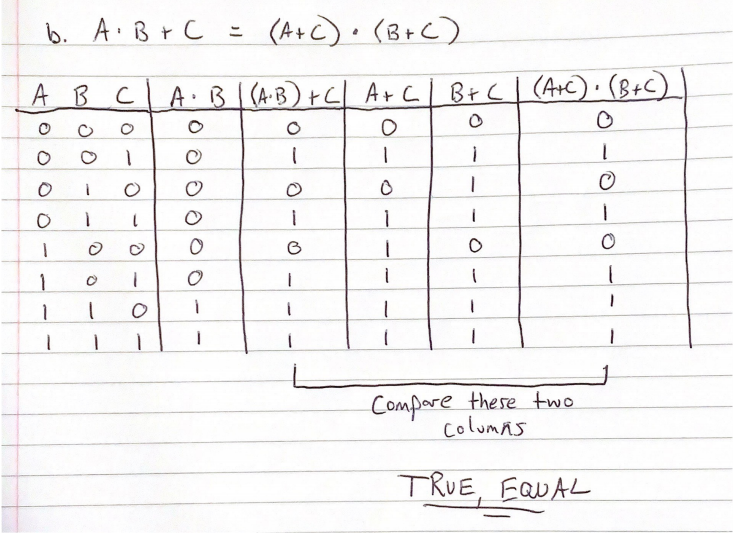 b. A · B + C = (A+C) · (B+C)
A B C A · B (A·B) + C A + C B + C (A+C) · (B+C)
0 0 0 0 0 0 0 0
0 0 1 0 1 1 1 1
0 1 0 0 0 0 1 0
0 1 1 0 1 1 1 1
1 0 0 0 0 1 0 0
1 0 1 0 1 1 1 1
1 1 0 1 1 1 1 1
1 1 1 1 1 1 1 1
Compare these two
columns
TRUE, EQUAL